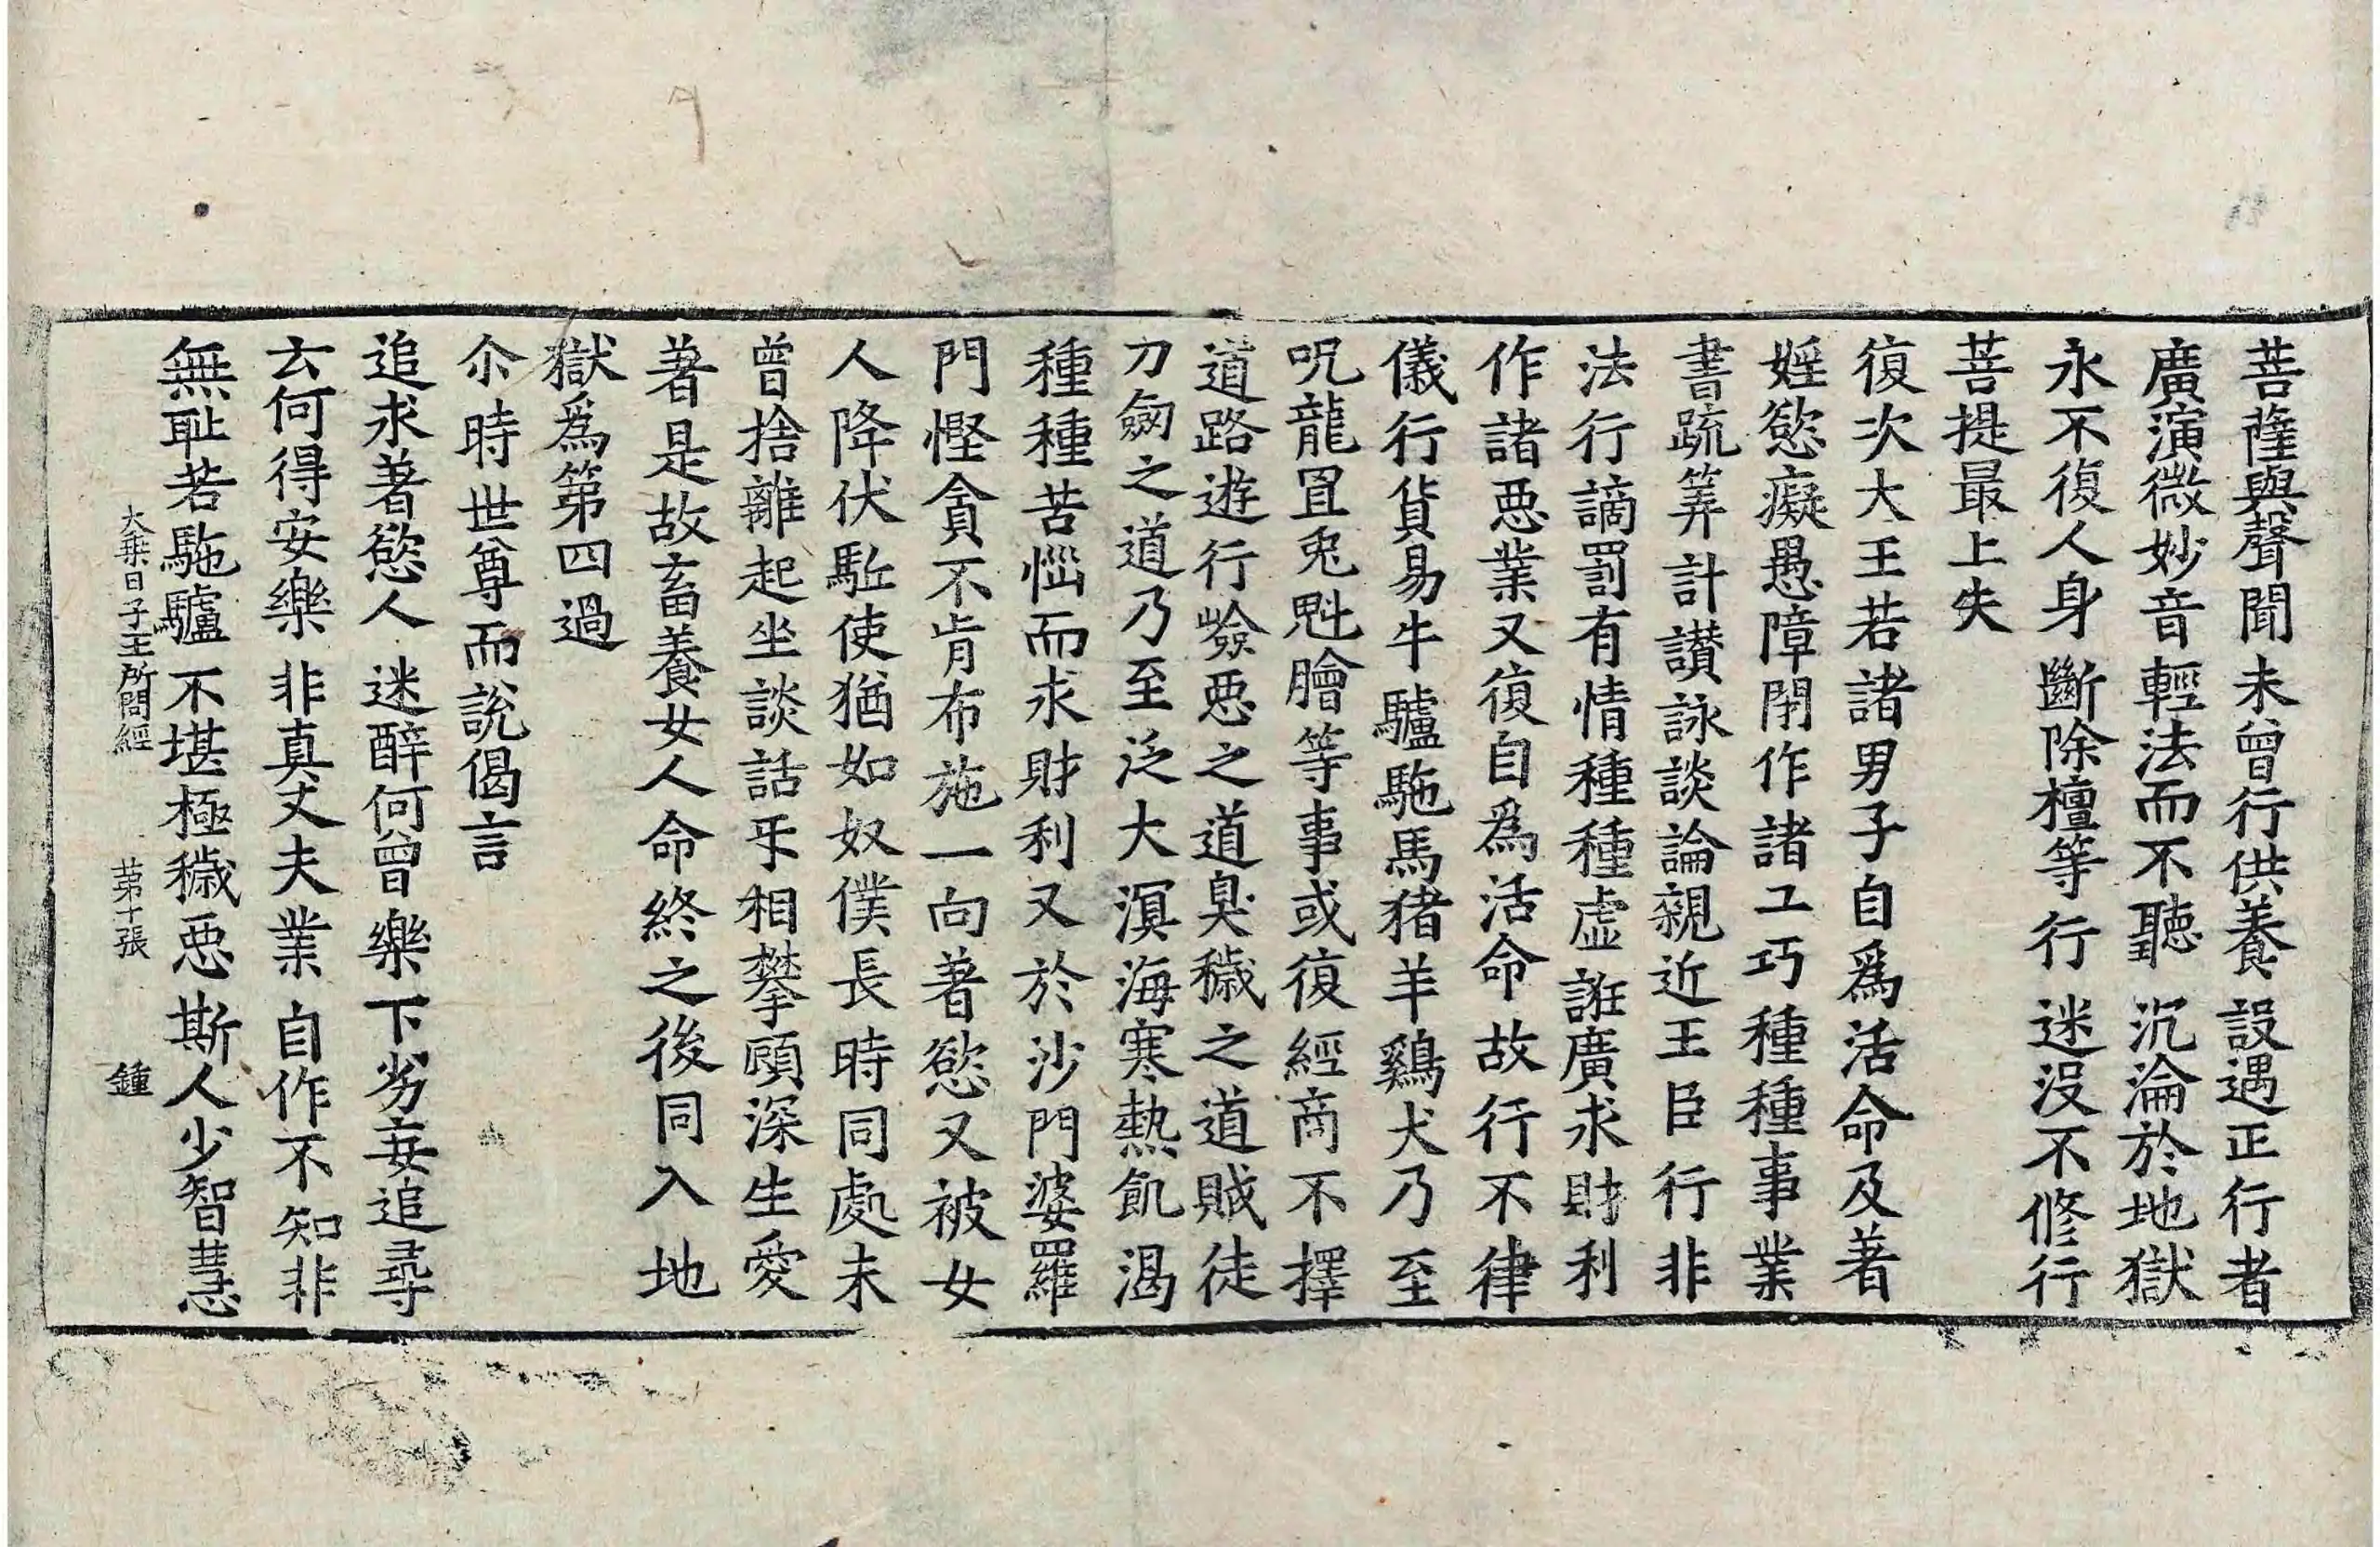 菩薩與聲聞　未曾行供養　設遇正行者
廣演微妙音　輕法而不聽　沉淪於地獄
永不復人身　斷除檀等行　迷没不修行
菩提最上失
復次大王若諸男子自爲活命及著
婬慾癡愚障閉作諸工巧種種事業
書疏筭計讃詠談論親近王臣行非
法行讁罰有情種種虛誑廣求財利
作諸惡業又復自爲活命故行不律
儀行貨易牛驢駞馬猪羊鷄犬乃至
呪龍罝兎魁膾等事或復經商不擇
道路遊行嶮惡之道臭穢之道賊徒
刀劒之道乃至泛大溟海寒熱飢渴
種種苦惱而求財利又於沙門婆羅
門慳貪不肯布施一向著慾又被女
人降伏駈使猶如奴僕長時同處未
曾捨離起坐談話互相攀顧深生愛
著是故畜養女人命終之後同入地
獄爲第四過
尒時世尊而說偈言
追求著慾人　迷醉何曾樂　下劣妄追尋
云何得安樂　非真丈夫業　自作不知非
無恥若駞驢　不堪極穢惡　斯人少智慧
大乗日子王所問經　苐十張　鍾